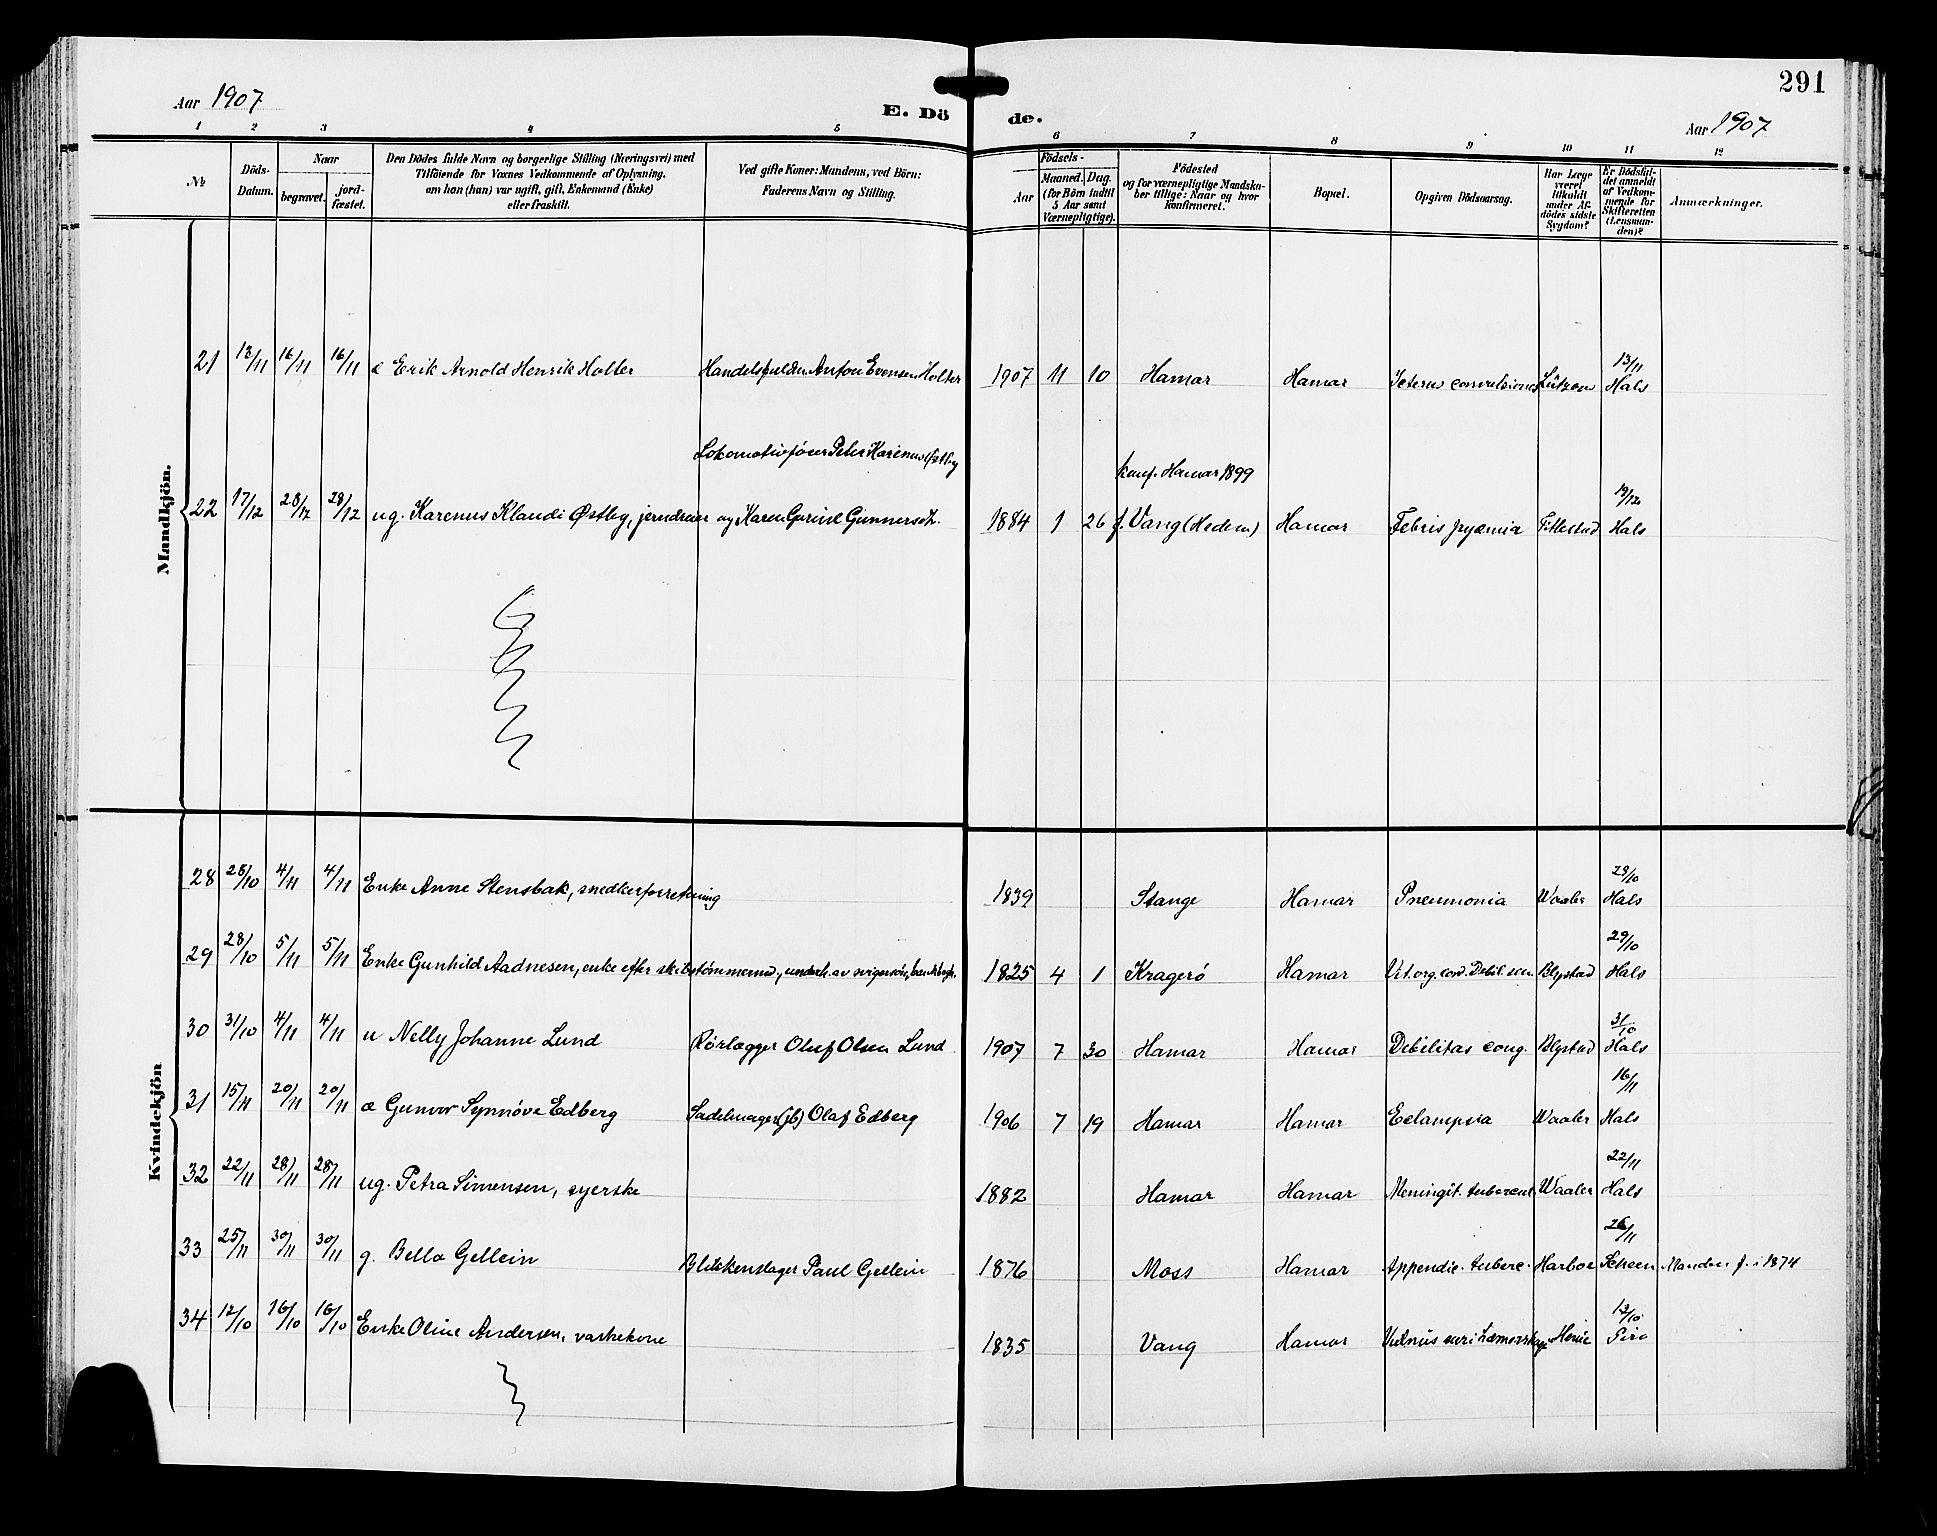 Aar 1907
E. Dö de.
291
Aar 1907
1 2 3 4 5 6 7 8 9 10 11 12
№
Döds-Datum.
Naar
begravet.
jord-fæstet.
Den Dödes fulde Navn og borgerlige Stilling (Næringsvei) med
Tilföiende for Voxnes Vedkommende af Oplysning,
om han (hun) var ugift, gift, Enkemand (Enke)
eller fraskilt.
Ved gifte Koner: Mandens, ved Börn:
Faderens Navn og Stilling.
Födsels-
Aar
Maaned. Dag.
(for Börn indtil
5 Aar samt
Værnepligtige).
Födested
og for værnepligtige Mandska-
ber tillige: Naar og hvor
konfirmeret.
Bopæl.
Opgiven Dödsaarsag.
Har Læge
været
tilkaldt
under Af-
dödes sidste
Sygdom?
Er Dödsfal-
det anmeldt
af Vedkom-
mende for
Skifteretten
(Lensman-
den)?
Anmærkninger.
Mandkjön.
21 13/11 16/11 16/11 æ Erik Arnold Henrik Holter Anton Evensen Holter 1907 11 10 Hamar Hamar Icterus convulsiones Lützow 13/11 Hals
Lokomotivfører Peter Karenus Østby
konf. Hamar 1899
22 17/12 28/12 28/12 ug. Karenus Klaudi Østby, jerndreier og Karen Gurine Gunnersdt. 1884 1 26 f. Vang (Hedem) Hamar Febris pyæmia 19/12 Hals
Kvindekjön
28 28/10 4/11 4/11 Enke Anne Stensbak, snedkerforretning 1839 Stange Hamar Pneumonia Waaler 29/10 Hals
29 28/10 5/11 5/11 Enke Gunhild Aadnesen, enke efter skibstømmermd., underh. av svigersøn, 1825 4 1 Kragerö Hamar Vit. org. cord. Debil. sen. Blystad 29/10 Hals
30 31/10 4/11 4/11 u Nelly Johanne Lund Rörlægger Oluf Olsen Lund 1907 7 30 Hamar Hamar Debilitas cong. Blystad 31/10 Hals
31 15/11 20/11 20/11 æ Gunvor Synnöve Edberg Sadelmager (jb) Olaf Edberg 1906 7 19 Hamar Hamar Eclampsia Waaler 16/11 Hals
32 22/11 28/11 28/11 ug. Petra Simensen, syerske 1882 Hamar Hamar Meningit. tubercul. Waaler 22/11 Hals
33 25/11 30/11 30/11 g. Bella Gellein Blikkenslager Paul Gellein 1876 Moss Hamar Appendic. tuberc. Harboe 26/11 Scheen Manden f. i 1874
34 12/10 16/10 16/10 Enke Oline Andersen, vaskekone 1835 Vang Hamar 12/10